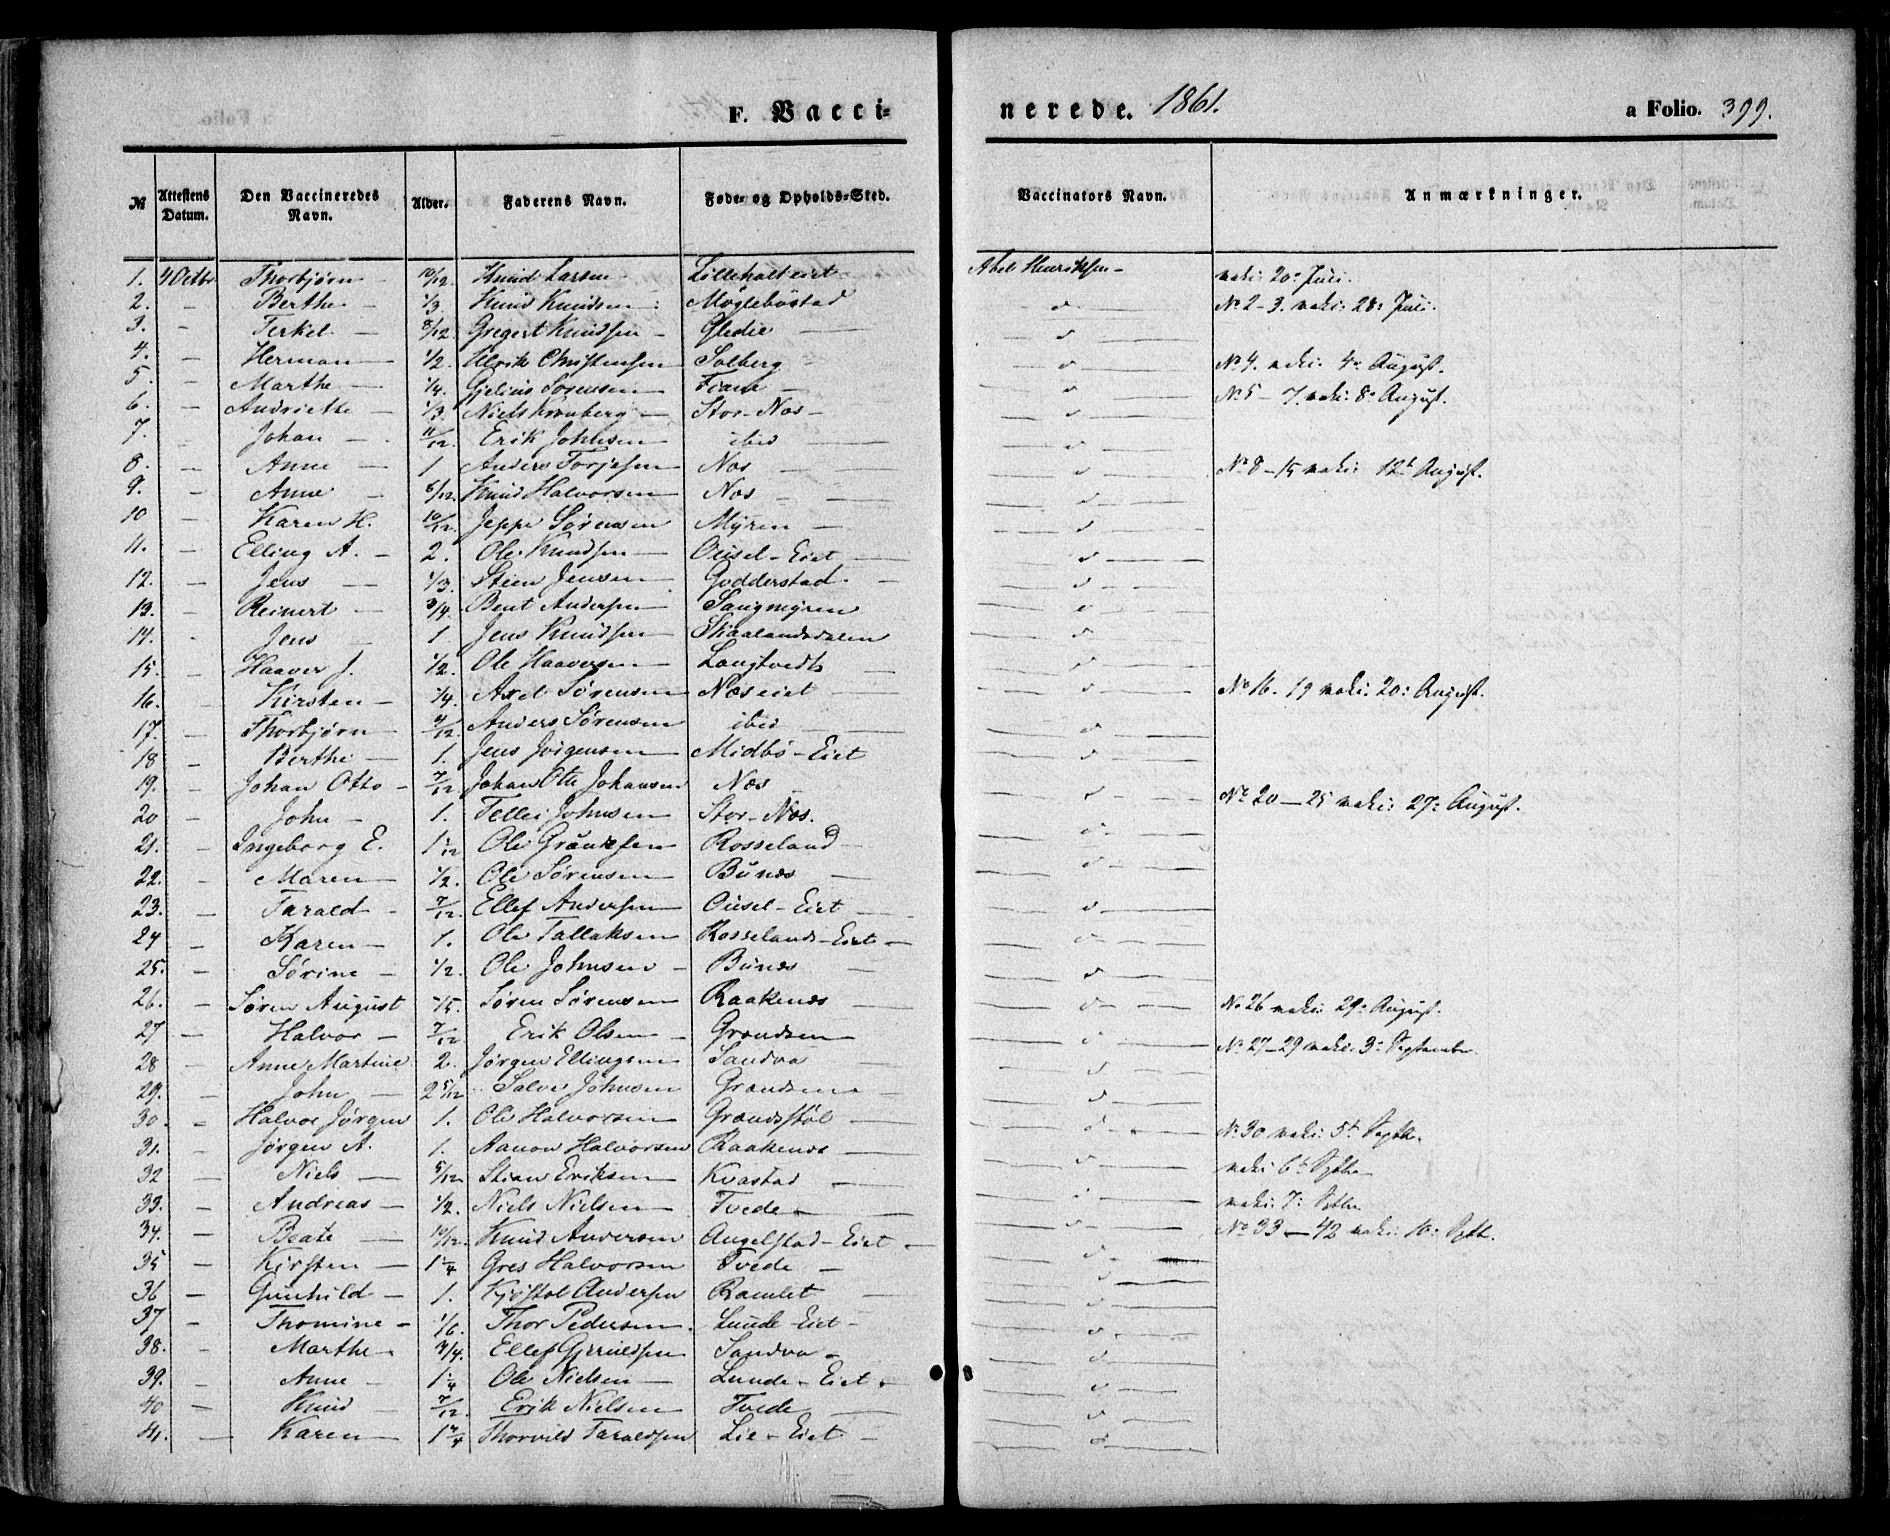 F. Vacci-
nerede. 1861. a Folio. 399.
№ Attestens Datum. Den Vaccineredes Navn. Alder. Faderens Navn. Føde- og Opholds-Sted. Vaccinators Navn. Anmærkninger.
1. 4 Octbr Thorbjørn 10/12. Knud Larsen Lilleholteiet Abel Henriksen vaki: 20: Juli.
2. — Berthe 1/3 Knud Knudsen Møglebøstad № 2-3. vaki: 28: Juli.
3. — Terkel 8/12. Gregert Knudsen Gledie
4. — Herman 1/2. Ulrik Christensen Solberg № 4. vaki: 4: August.
5. — Marthe 1/4. Gjelius Sørensen Fiane № 5 - 7. vaki: 8: August.
6. — Andriette 1/3. Niels Kronberg Stor-Næs
7. — Johan 11/12. Erik Johnsen ibid
8. — Anne 1 Anders Torjesen Næs № 8-15 vaki: 12t August.
9. — Anne 8/12. Knud Halvorsen Næs
10 — Karen K. 10/12. Jeppe Sørensen Myren
11. — Elling A. 2. Ole Knudsen Ousel-Eiet
12. — Jens 1/3. Stien Jensen Godderstad
13. — Reinert 3/4. Bent Andersen Sangmyren
14. — Jens 1. Jens Knudsen Skaalandsdalen
15. — Haaver J. 1/2. Ole Haaversen Langtvedt
16. — Kirsten 1/4. Axel Sørensen Næseiet № 16. 19 vaki: 20: August.
17. — Thorbjørn 4/12. Anders Sørensen ibid
18 — Berthe 1. Jens Jørgensen Midbø-Eiet
19. — Johan Otto 7/12 Johan Otto Johansen Næs
20 — John 1. Tellef Johnsen Stor-Næs. № 20-25 vaki: 27: August.
21. — Ingeborg E. 1 1/12 Ole Rosseland
22. — Maren 1/2. Ole Sørensen Bunæs
23. — Tarald 7/12. Ellef Andersen Ousel-Eiet
24 — Karen 1. Ole Tallaksen Rosselands-Eiet
25. — Sørine 1/2. Ole Johnsen Bunæs
26. — Søren August Søren Sørensen Raakenæs № 26 vaki: 29: August.
27 — Halvor 7/12 Erik Olsen Grændsen № 27-29 vaki: 3: September
28 — Anne Martine 2. Jørgen Ellingsen Sandva
29. — John 2 5/12 Salve Johnsen Grændsen
30. — Halvor Jørgen 1. Ole Halvorsen Grændsstøl № 30 vaki: 5t Septbr.
31. — Jørgen A. 1. Aanon Halvorsen Raakenæs
32 — Niels 5/12 Stian Eriksen Kvastad vaki: 6t Septbr
33. — Andreas 1/2. Niels Nielsen Tvede vaki: 7: Septbr
34. — Beate 10/12. Knud Andersen Angelstad-Eiet № 33-42 vaki: 10: Septb.
35 — Kirsten 1 1/4 Gres Halvorsen Tvede
36 — Gunhild 1. Kjøstol Andersen Ramlet
37 — Thomine 1/6. Thor Pedersen. Lunde-Eiet
38. — Marthe 3/4. Ellef Gjeruldsen Sandva
39. — Anne 1 1/4 Ole Nielsen Lunde-Eiet
40 — Knud 7/12. Erik Nielsen Tvede
41. — Karen Thorvild Taraldsen Lie-Eiet